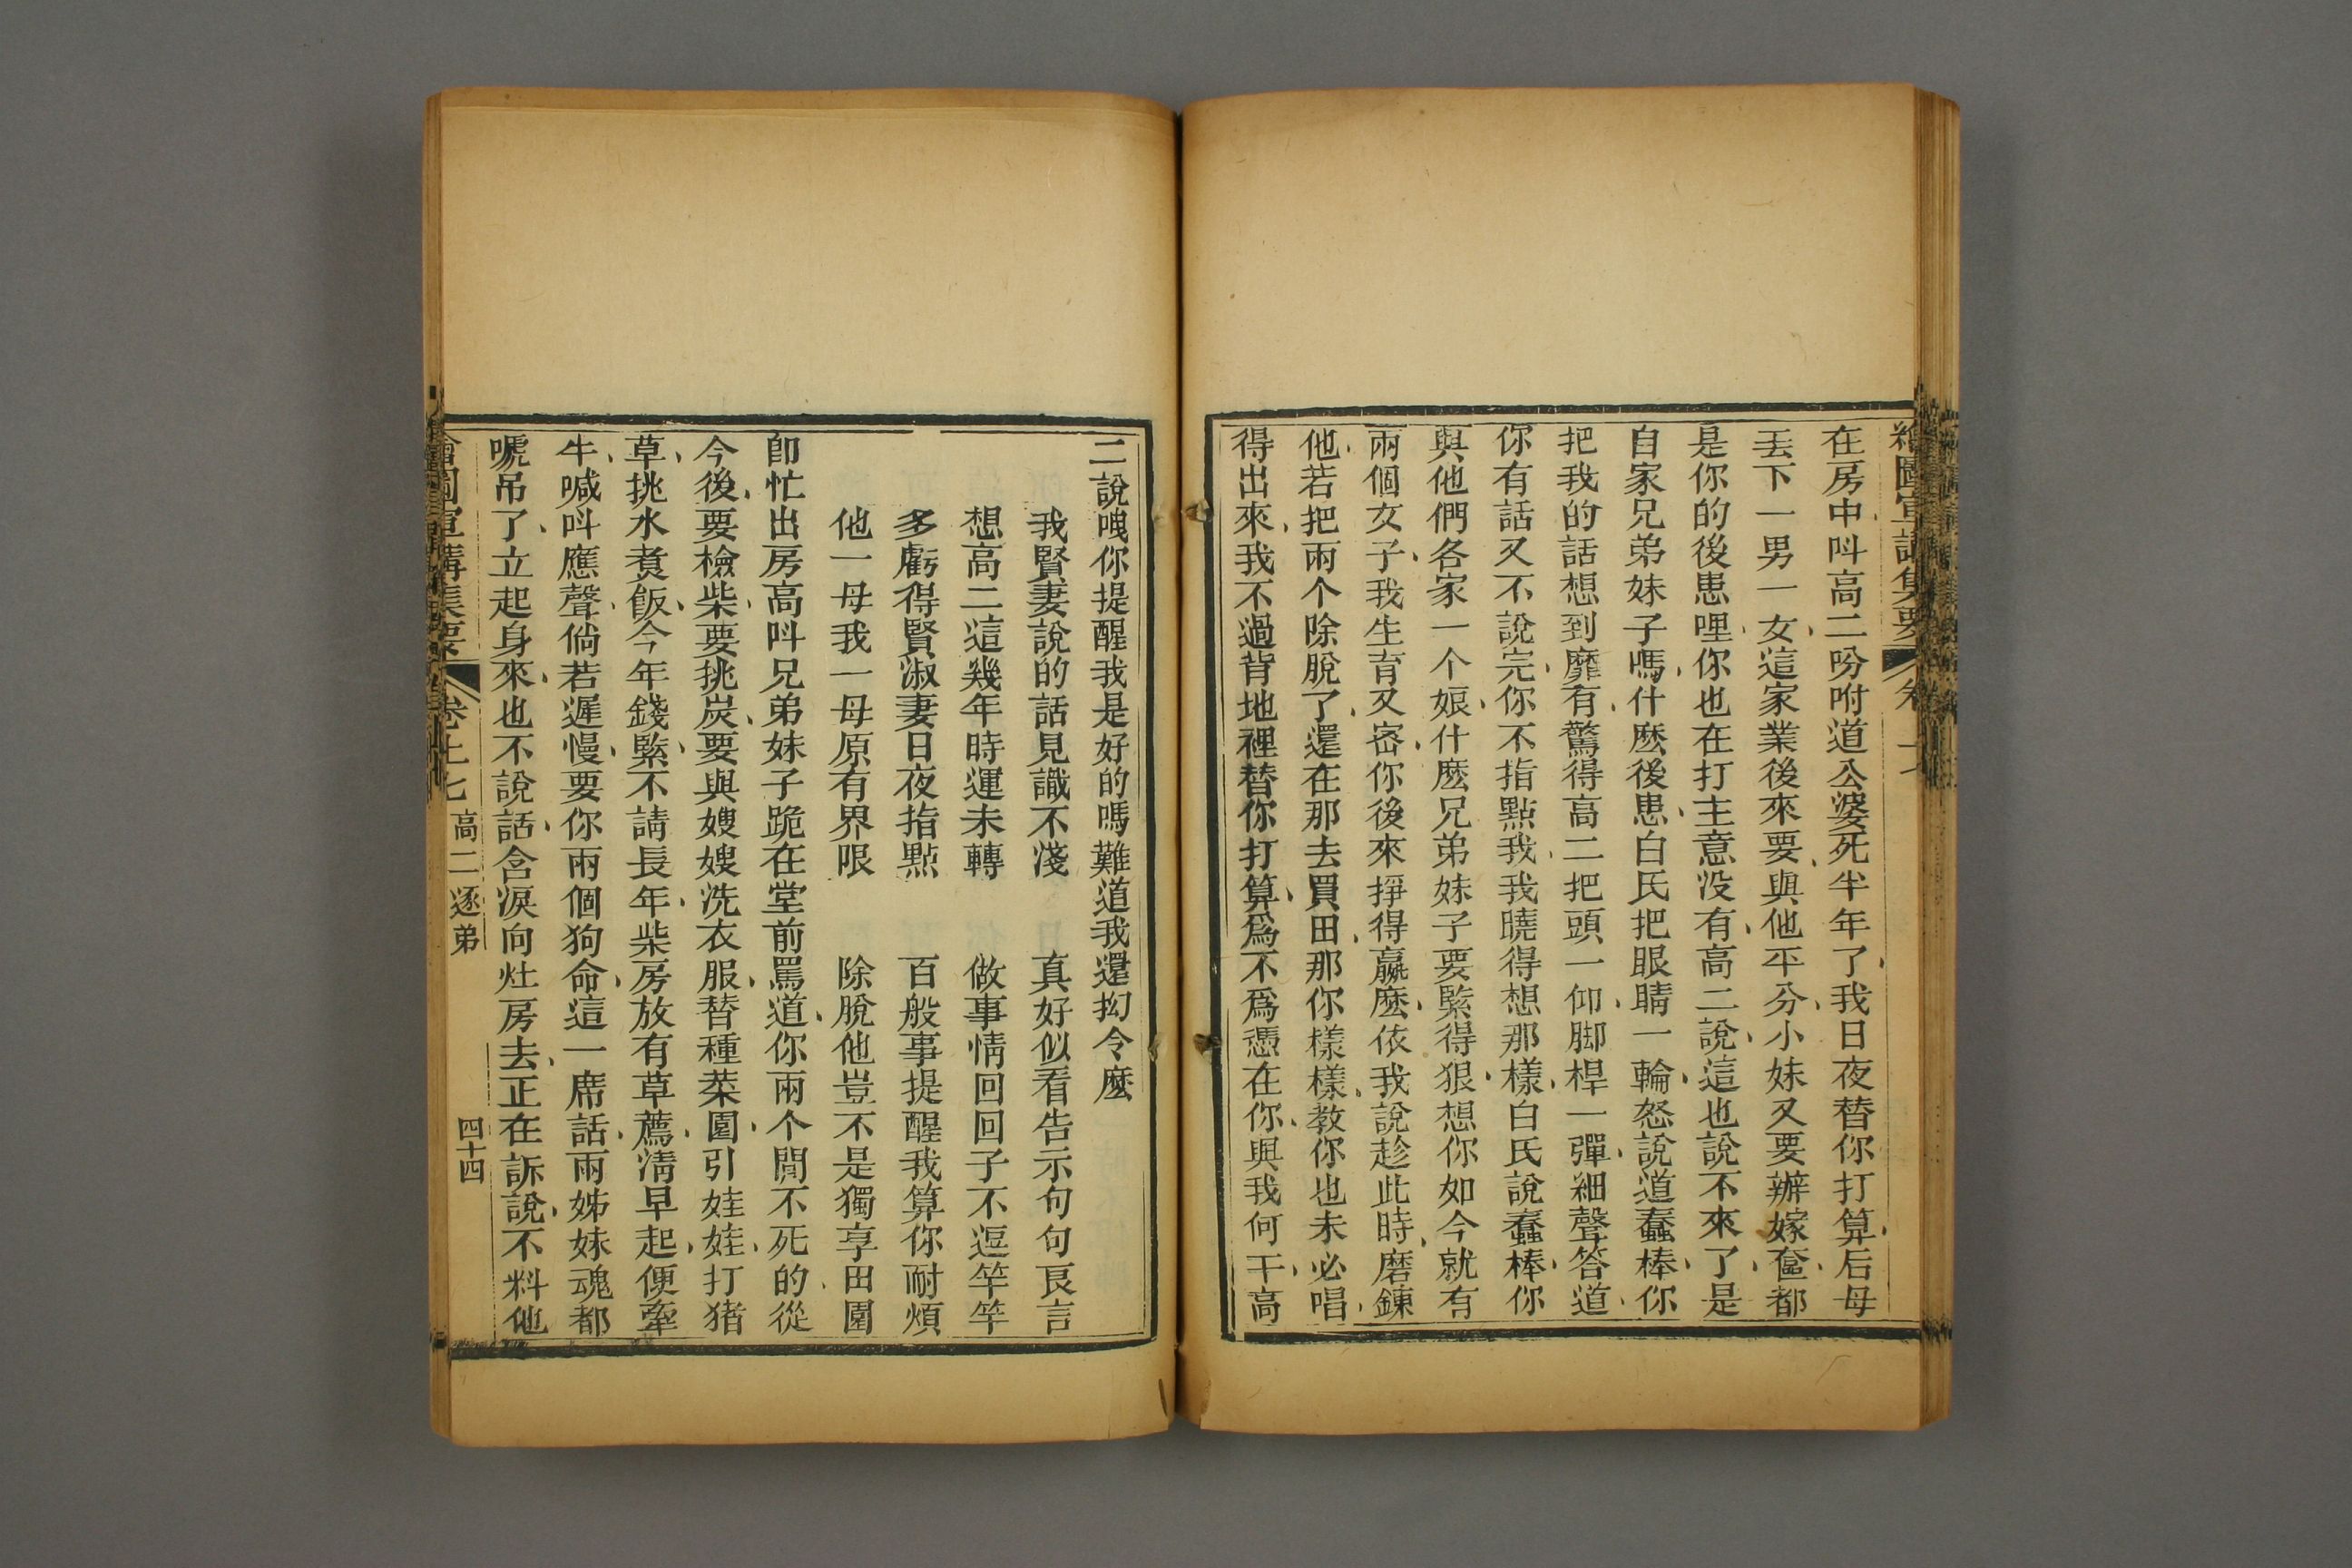 繪圖宣講集要 卷七
在房中呌高二吩咐道公婆死半年了、我日夜替你打算、后母
丟下一男一女、這家業後來要、與他平分、小妹又要辦嫁奩、都
是你的後患哩、你也在打主意没有、高二說、這也說不來了、是
自家兄弟妹子嗎、什麽後患、白氏把眼睛一輪、怒說道蠢棒、你
把我的話想到靡有、驚得高二把頭一仰、脚桿一彈、細聲答道、
你有話又不說完、你不指點我、我曉得想那樣、白氏說蠢棒、你
與他們各家一个娘、什麽兄弟妹子要緊得狠、想你如今就有
兩個女子、我生育又密、你後來掙得贏麽、依我說趁此時、磨鍊
他、若把兩个除脫了、還在那去買田、那你樣樣、教你也未必唱、
得出來、我不過背地裡替你打算、爲不爲憑在你、與我何干、高
二說哦你提醒我是好的嗎難道我還拗令麽
我賢妻說的話見識不淺 真好似看告示句句良言
想高二這幾年時運未轉 做事情回回子不逗竿竿
多虧得賢淑妻日夜指點 百般事提醒我算你耐煩
他一母我一母原有界限 除脫他豈不是獨享田園
卽忙出房高呌兄弟妹子跪在堂前罵道、你兩个閒不死的、從
今後、要檢柴、要挑炭、要與嫂嫂洗衣服、替種菜園、引娃娃、打猪
草、挑水煑飯、今年錢緊、不請長年、柴房放有草薦、淸早起、便牽
牛、喊呌應聲、倘若遲慢、要你兩個狗命、這一席話、兩姊妹魂都
唬吊了、立起身來、也不說話、含淚向灶房去、正在訴說、不料他
繪圖宣講集要 卷七 高二逐弟 四十四